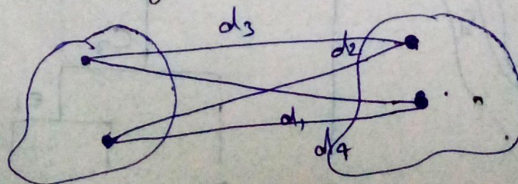 d3
d2
d1
d4